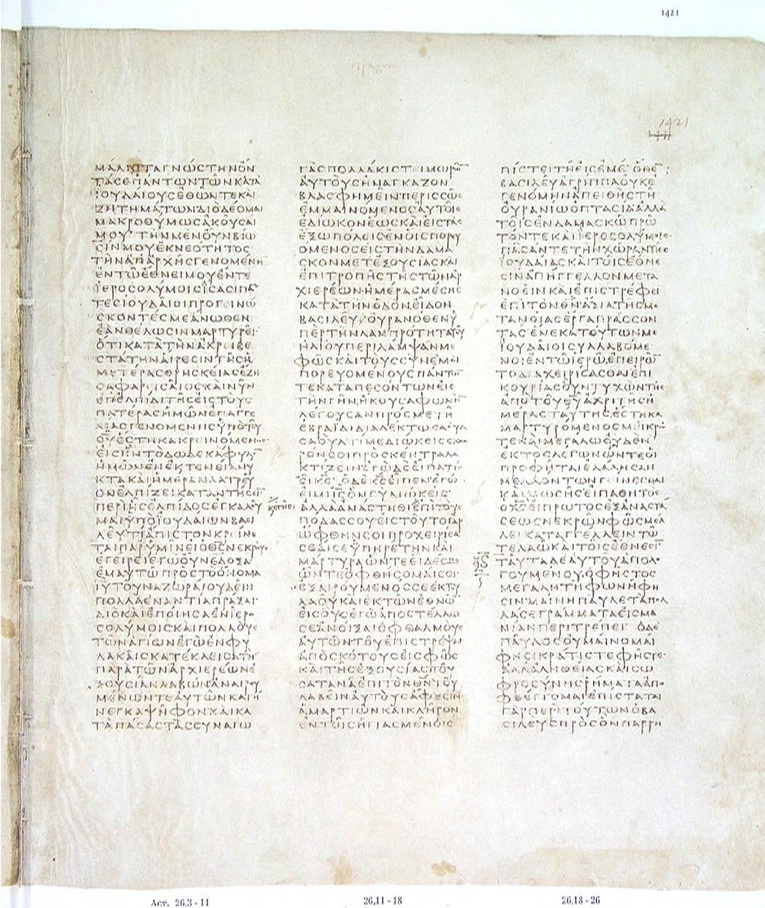 1421
1421
ΜΑΛΙΣΤΑΓΝΩΣΤΗΝΟΝ
ΤΑΣΕΠΑΝΤΩΝΤΩΝΚΑΤΑ
ΙΟΥΔΑΙΟΥΣΕΘΩΝΤΕΚΑΙ
ΖΗΤΗΜΑΤΩΝΔΙΟΔΕΟΜΑΙ
ΜΑΚΡΟΘΥΜΩΣΑΚΟΥΣΑΙ
ΜΟΥ ΤΗΝΜΕΝΟΥΝΒΙΩ
ΣΙΝΜΟΥΕΚΝΕΟΤΗΤΟΣ
ΤΗΝΑΠΑΡΧΗΣΓΕΝΟΜΕΝΗ
ΕΝΤΩΕΘΝΕΙΜΟΥΕΝΤΕ
ΙΕΡΟΣΟΛΥΜΟΙΣΙΣΑΣΙΠΑ
ΤΕΣΙΟΥΔΑΙΟΙΠΡΟΓΕΙΝΩ
ΣΚΟΝΤΕΣΜΕΑΝΩΘΕΝ
ΕΑΝΘΕΛΩΣΙΝΜΑΡΤΥΡΕΙ
ΟΤΙΚΑΤΑΤΗΝΑΚΡΙΒΕ
ΣΤΑΤΗΝΑΙΡΕΣΙΝΤΗΣΗ
ΜΕΤΕΡΑΣΘΡΗΣΚΕΙΑΣΕΖΗ
ΣΑΦΑΡΙΣΑΙΟΣΚΑΙΝΥΝ
ΕΠΕΛΠΙΔΙΤΗΣΕΙΣΤΟΥΣ
ΠΑΤΕΡΑΣΗΜΩΝΕΠΑΓΓΕ
ΛΙΑΣΓΕΝΟΜΕΝΗΣΥΠΟΤΟΥ
ΘΥΕΣΤΗΚΑΚΡΕΙΝΟΜΕΝΟΣ
ΕΙΣΗΝΤΟΔΩΔΕΚΑΦΥΛΟ
ΗΜΩΝΕΝΕΚΤΕΝΕΙΑΝΥ
ΚΤΑΚΑΙΗΜΕΡΑΝΛΑΤΡΕΥ
ΟΝΕΛΠΙΖΕΙΚΑΤΑΝΤΗΣΕΙ
ΠΕΡΙΗΣΕΛΠΙΔΟΣΕΓΚΑΛΟΥ
ΜΑΙΥΠΟΙΟΥΔΑΙΩΝΒΑΣΙ
ΛΕΥΤΙΑΠΙΣΤΟΝΚΡΕΙΝΕ
ΤΑΙΠΑΡΥΜΙΝΕΙΟΘΣΝΕΚΡΟΥΣ
ΕΓΕΙΡΕΙΕΓΩΟΥΝΕΔΟΞΑ
ΕΜΑΥΤΩΠΡΟΣΤΟΟΝΟΜΑ
ΙΥΤΟΥΝΑΖΩΡΑΙΟΥΔΕΙΝ
ΠΟΛΛΑΕΝΑΝΤΙΑΠΡΑΞΑΙ
ΔΙΟΚΑΙΕΠΟΙΗΣΑΕΝΙΕΡΟ
ΣΟΛΥΜΟΙΣΚΑΙΠΟΛΛΟΥΣ
ΤΩΝΑΓΙΩΝΕΓΩΕΝΦΥ
ΛΑΚΑΙΣΚΑΤΕΚΛΕΙΣΑΤΗΝ
ΠΑΡΑΤΩΝΑΡΧΙΕΡΕΩΝΕ
ΞΟΥΣΙΑΝΛΑΒΩΝΑΝΑΙΡΟΥ
ΜΕΝΩΝΤΕΑΥΤΩΝΚΑΤΗ
ΝΕΓΚΑΨΗΦΟΝΚΑΙΚΑ
ΤΑΠΑΣΑΣΤΑΣΣΥΝΑΓΩ
ΓΑΣΠΟΛΛΑΚΙΣΤΕΙΜΩΡΩ
ΑΥΤΟΥΣΗΝΑΓΚΑΖΟΝ
ΒΛΑΣΦΗΜΕΙΝΠΕΡΙΣΣΩΣ
ΕΜΜΑΙΝΟΜΕΝΟΣΑΥΤΟΙΣ
ΕΔΙΩΚΟΝΕΩΣΚΑΙΕΙΣΤΑΣ
ΕΞΩΠΟΛΕΙΣΕΝΟΙΣΠΟΡΕΥ
ΟΜΕΝΟΣΕΙΣΤΗΝΔΑΜΑ
ΣΚΟΝΜΕΤΕΞΟΥΣΙΑΣΚΑΙ
ΕΠΙΤΡΟΠΗΣΤΗΣΤΩΝΑΡ
ΧΙΕΡΕΩΝΗΜΕΡΑΣΜΕΣΗΣ
ΚΑΤΑΤΗΝΟΔΟΝΕΙΔΟΝ
ΒΑΣΙΛΕΥΟΥΡΑΝΟΘΕΝΥ
ΠΕΡΤΗΝΛΑΜΠΡΟΤΗΤΑΤΟΥ
ΗΛΙΟΥΠΕΡΙΛΑΜΨΑΝΜΕ
ΦΩΣΚΑΙΤΟΥΣΣΥΝΕΜΟΙ
ΠΟΡΕΥΟΜΕΝΟΥΣΠΑΝΤΩ
ΤΕΚΑΤΑΠΕΣΟΝΤΩΝΕΙΣ
ΤΗΝΓΗΝΗΚΟΥΣΑΦΩΝΗ
ΛΕΓΟΥΣΑΝΠΡΟΣΜΕΤΗ
ΕΒΡΑΙΔΙΔΙΑΛΕΚΤΩΣΑΟΥΛ
ΣΑΟΥΛΤΙΜΕΔΙΩΚΕΙΣΣΚΛΗ
ΡΟΝΣΟΙΠΡΟΣΚΕΝΤΡΑΛΑ
ΚΤΙΖΕΙΝΕΓΩΔΕΕΙΠΑΤΙΣ
ΕΙΚΕ ΟΔΕΚΣΕΙΠΕΝΕΓΩ
ΕΙΜΙΙΣΟΝΣΥΔΙΩΚΕΙΣ
ΑΛΛΑΑΝΑΣΤΗΘΙΕΠΙΤΟΥΣ
ΠΟΔΑΣΣΟΥΕΙΣΤΟΥΤΟΓΑΡ
ΩΦΘΗΝΣΟΙΠΡΟΧΕΙΡΙΣΑ
ΣΘΑΙΣΕΥΠΗΡΕΤΗΝΚΑΙ
ΜΑΡΤΥΡΑΩΝΤΕΕΙΔΕΣΜΕ
ΩΝΤΕΟΦΘΗΣΟΜΑΙΣΟΙ
ΕΞΑΙΡΟΥΜΕΝΟΣΣΕΕΚΤΟΥ
ΛΑΟΥΚΑΙΕΚΤΩΝΕΘΝΩ
ΕΙΣΟΥΣΕΓΩΑΠΟΣΤΕΛΛΩ
ΣΕΑΝΟΙΞΑΙΟΦΘΑΛΜΟΥΣ
ΑΥΤΩΝΤΟΥΕΠΙΣΤΡΕΨΑΙ
ΑΠΟΣΚΟΤΟΥΣΕΙΣΦΩΣ
ΚΑΙΤΗΣΕΞΟΥΣΙΑΣΤΟΥ
ΣΑΤΑΝΑΕΠΙΤΟΝΘΝΤΟΥ
ΛΑΒΕΙΝΑΥΤΟΥΣΑΦΕΣΙΝ
ΑΜΑΡΤΙΩΝΚΑΙΚΛΗΡΟΝ
ΕΝΤΟΙΣΗΓΙΑΣΜΕΝΟΙΣ
ΠΙΣΤΕΙΤΗΕΙΣΕΜΕ ΟΘΕ
ΒΑΣΙΛΕΥΑΓΡΙΠΠΑΟΥΚΕ
ΓΕΝΟΜΗΝΑΠΕΙΘΗΣΤΗ
ΟΥΡΑΝΙΩΟΠΤΑΣΙΑΑΛΛΑ
ΤΟΙΣΕΝΔΑΜΑΣΚΩΠΡΩ
ΤΟΝΤΕΚΑΙΙΕΡΟΣΟΛΥΜΟΙΣ
ΠΑΣΑΝΤΕΤΗΝΧΩΡΑΝΤΗΣ
ΙΟΥΔΑΙΑΣΚΑΙΤΟΙΣΕΘΝΕ
ΣΙΝΑΠΗΓΓΕΛΛΟΝΜΕΤΑ
ΝΟΕΙΝΚΑΙΕΠΙΣΤΡΕΦΕΙ
ΕΠΙΤΟΝΘΝΑΞΙΑΤΗΣΜΕ
ΤΑΝΟΙΑΣΕΡΓΑΠΡΑΣΣΟΝ
ΤΑΣΕΝΕΚΑΤΟΥΤΩΝΜΕ
ΙΟΥΔΑΙΟΙΣΥΛΛΑΒΟΜΕ
ΝΟΙΕΝΤΩΙΕΡΩΕΠΕΙΡΩ
ΤΟΔΙΑΧΕΙΡΙΣΑΣΘΑΙΕΠΙ
ΚΟΥΡΙΑΣΟΥΝΤΥΧΩΝΤΗΣ
ΑΠΟΤΟΥΘΥΑΧΡΙΤΗΣΗ
ΜΕΡΑΣΤΑΥΤΗΣΕΣΤΗΚΑ
ΜΑΡΤΥΡΟΜΕΝΟΣΜΕΙΚΡΩ
ΤΕΚΑΙΜΕΓΑΛΩΟΥΔΕΝ
ΕΚΤΟΣΛΕΓΩΝΩΝΤΕΟΙ
ΠΡΟΦΗΤΑΙΕΛΑΛΗΣΑΝ
ΜΕΛΛΟΝΤΩΝΓΕΙΝΕΣΘΑΙ
ΚΑΙΜΩΣΗΣΕΙΠΑΘΗΤΟΣ
ΟΧΣΕΙΠΡΩΤΟΣΕΞΑΝΑΣΤΑ
ΣΕΩΣΝΕΚΡΩΝΦΩΣΜΕΛ
ΛΕΙΚΑΤΑΓΓΕΛΛΕΙΝΤΩ
ΤΕΛΑΩΚΑΙΤΟΙΣΕΘΝΕΣΙ
ΤΑΥΤΑΔΕΑΥΤΟΥΑΠΟΛΟ
ΓΟΥΜΕΝΟΥΟΦΗΣΤΟΣ
ΜΕΓΑΛΗΤΗΦΩΝΗΦΗ
ΣΙΝΜΑΙΝΗΠΑΥΛΕΤΑΠΟΛ
ΛΑΣΕΓΡΑΜΜΑΤΑΕΙΣΜΑ
ΝΙΑΝΠΕΡΙΤΡΕΠΕΙ ΟΔΕ
ΠΑΥΛΟΣΟΥΜΑΙΝΟΜΑΙ
ΦΗΣΙΚΡΑΤΙΣΤΕΦΗΣΤΕ
ΑΛΛΑΑΛΗΘΕΙΑΣΚΑΙΣΩ
ΦΡΟΣΥΝΗΣΡΗΜΑΤΑΑΠΟ
ΦΘΕΓΓΟΜΑΙΕΠΙΣΤΑΤΑΙ
ΓΑΡΠΕΡΙΤΟΥΤΩΝΟΒΑ
ΣΙΛΕΥΣΠΡΟΣΟΝΠΑΡΡΗ
Act. 26,3 - 11
26,11 - 18
26,18 - 26